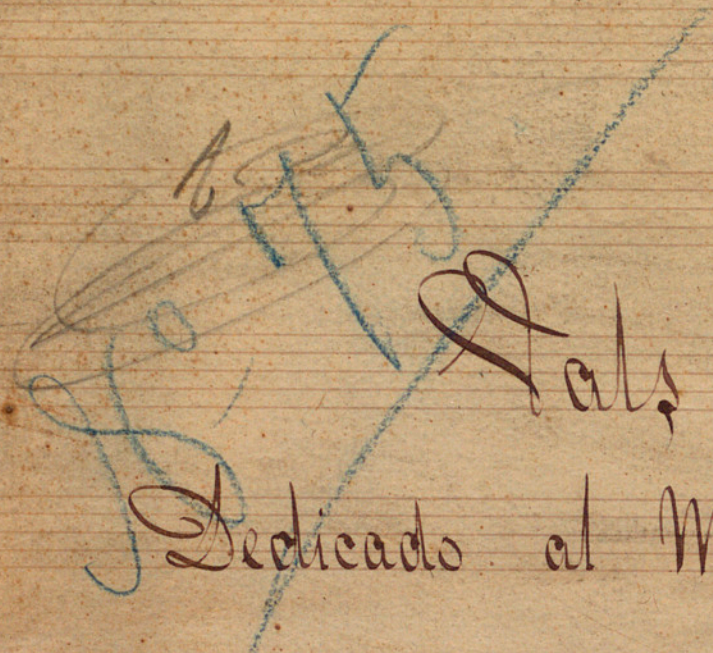 75
Vals
Dedicado al M